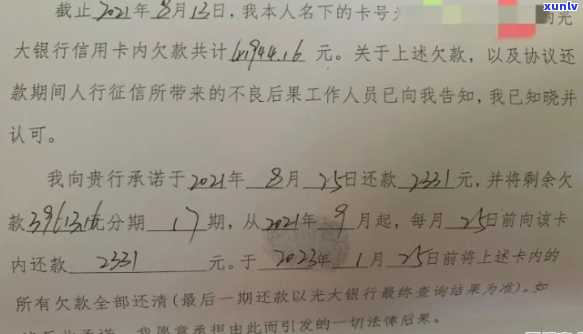 xunlv
截止 2021年 8月 13日，我本人名下的卡号 的光
大银行信用卡内欠款共计 41944.16 元。关于上述欠款，以及协议还
款期间人行征信所带来的不良后果工作人员已向我告知，我已知晓并
认可。
我向贵行承诺于 2021年 8月 25日还款 2331 元，并将剩余欠
款39613.16元分期 17 期，从2021年 9月起，每月 25日前向该卡
内还款 2331 元。于 2023年 1月 25日前将上述卡内的
所有欠款全部还清（最后一期还款以光大银行最终查询结果为准）。如
承诺，我愿意承担由此而引发的一切法律后果。